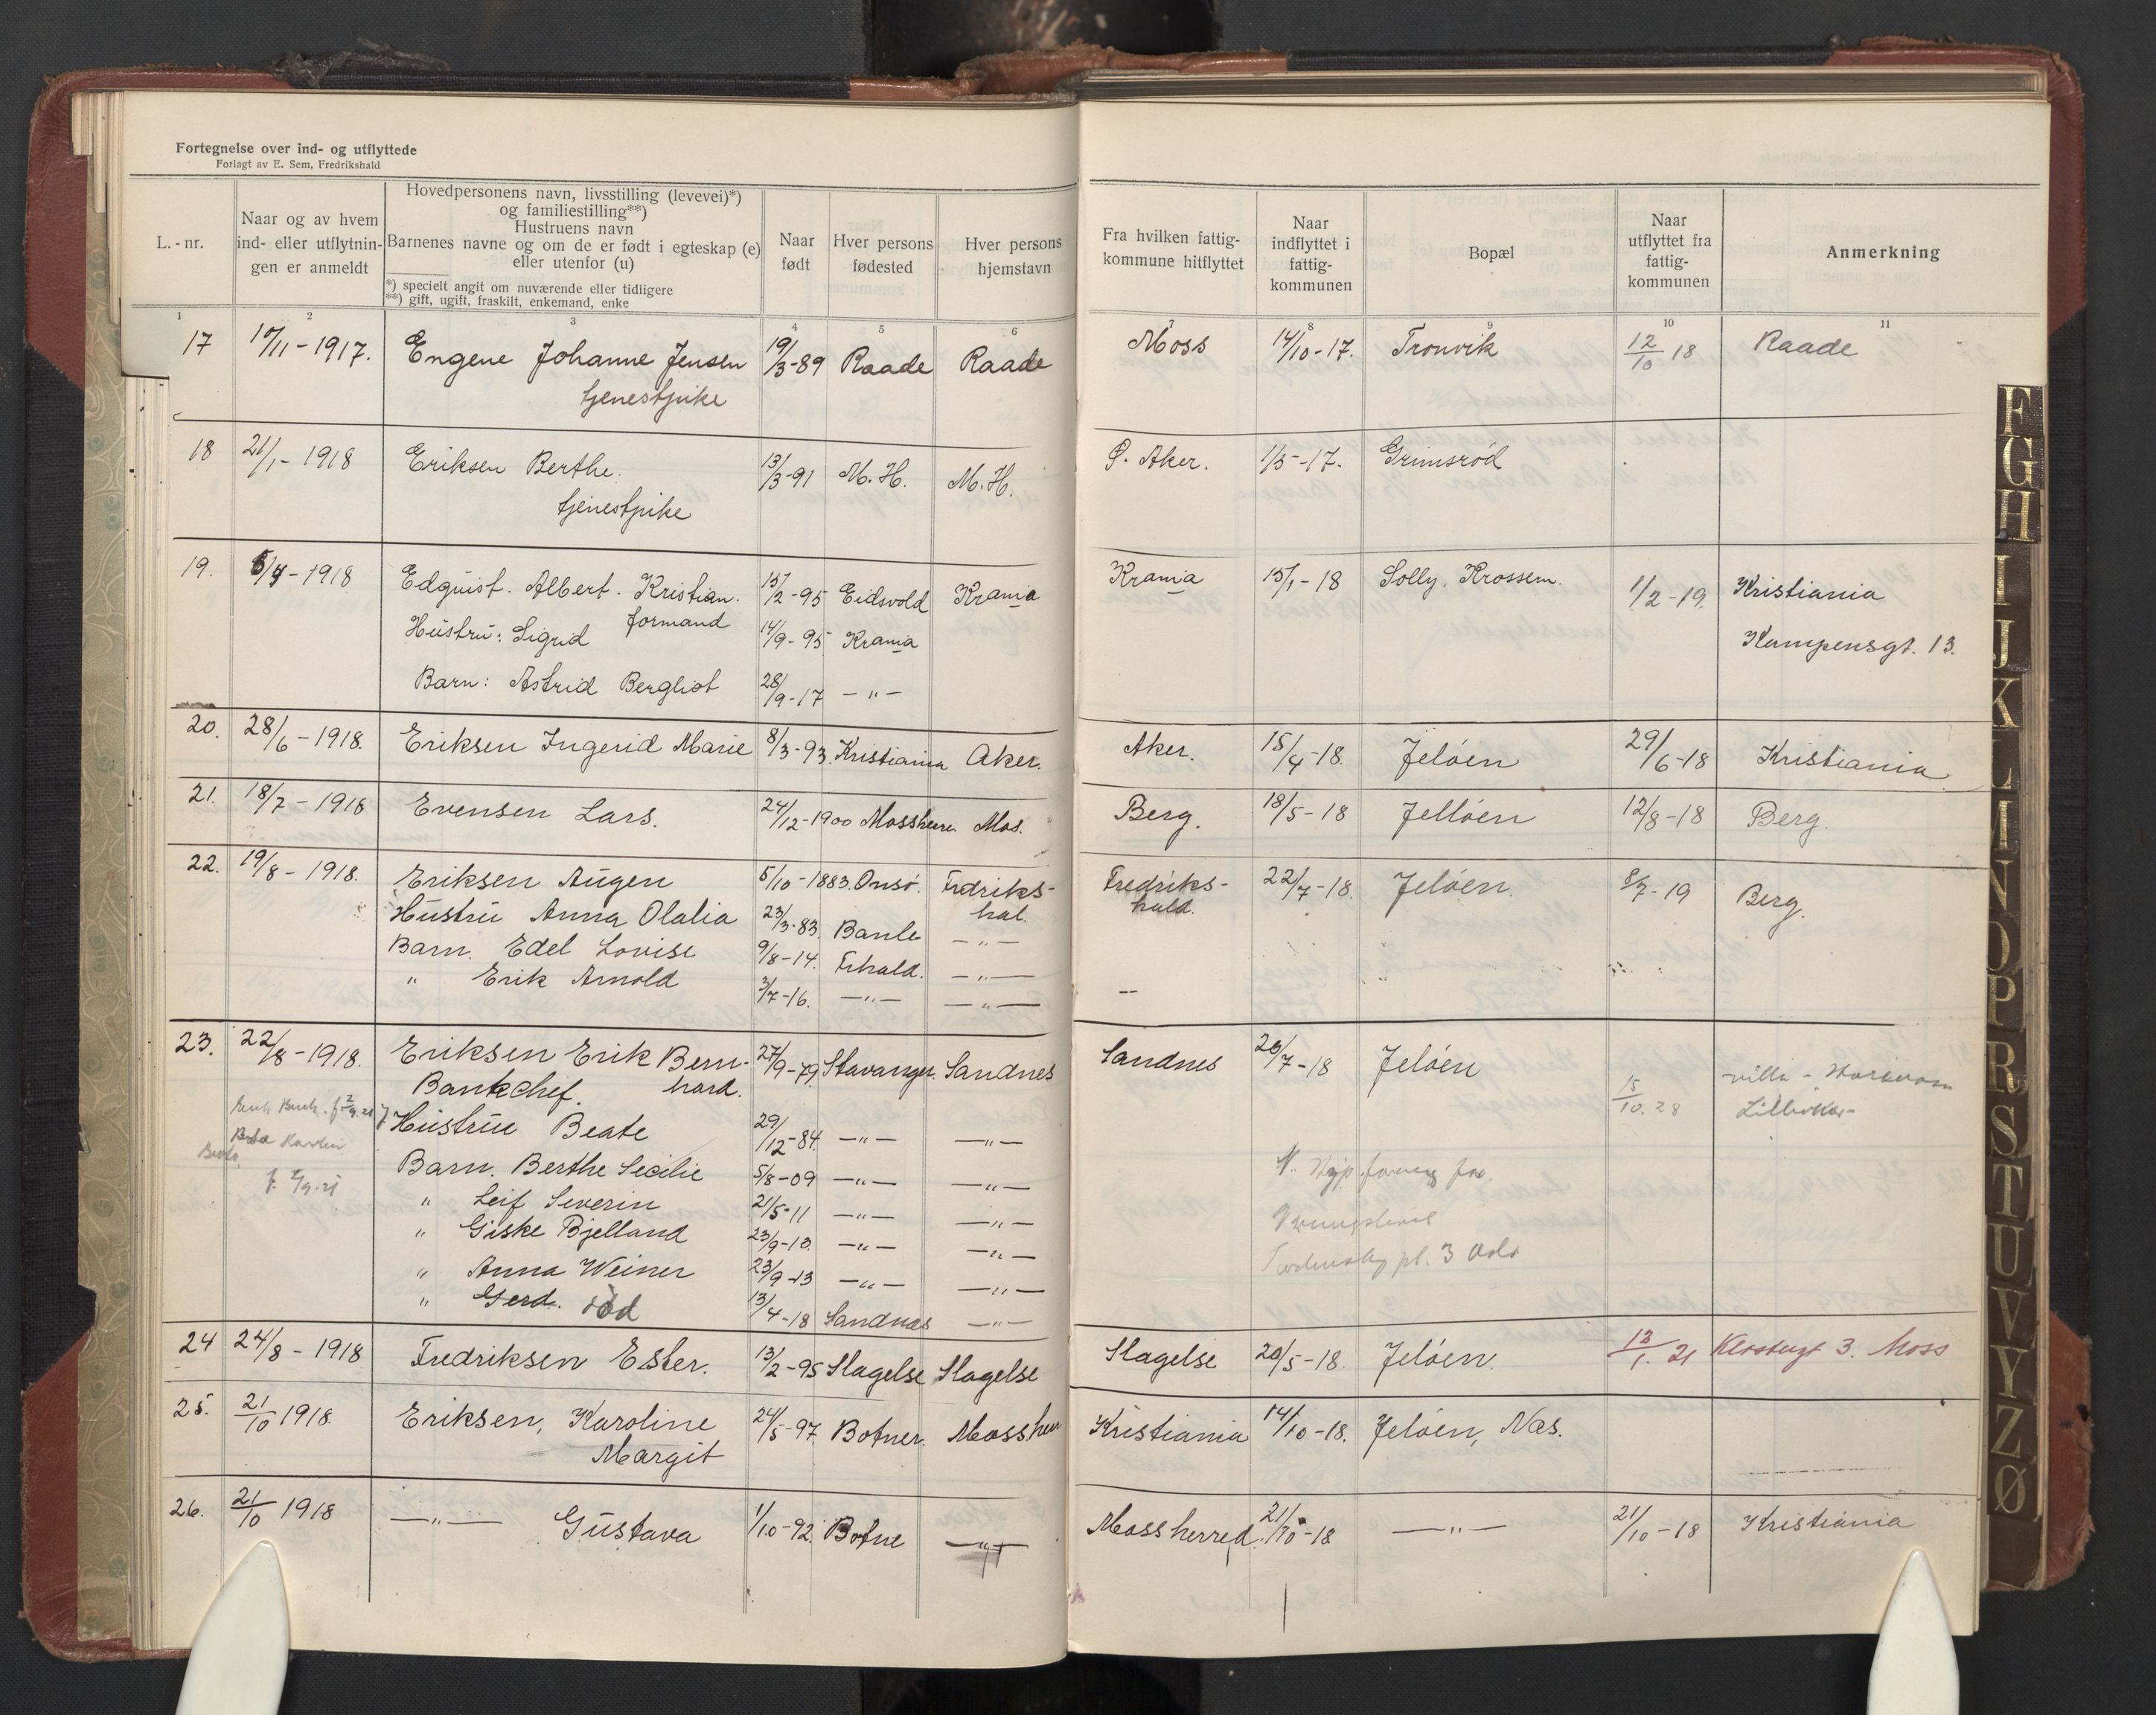 Fortegnelse over ind- og utflyttede
Forlagt av E. Sem, Fredrikshald
L.-nr.
Naar og av hvem ind- eller utflytnin-gen er anmeldt
Hovedpersonens navn, livsstilling (levevei)*)
og familiestilling**)
Hustruens navn
Barnenes navne og om de er født i egteskap (e)
eller utenfor (u)
*) specielt angit om nuværende eller tidligere
**) gift, ugift, fraskilt, enkemand, enke
Naar født
Hver persons fødested
Hver persons hjemstavn
Fra hvilken fattig-kommune hitflyttet
Naar indflyttet i fattig-kommunen
Bopæl
Naar utflyttet fra fattig-kommunen
Anmerkning
1 2 3 4 5 6 7 8 9 10 11
17 Engene Johanne Jensen 19/3-89 Raade Raade Moss 14/10-17. Tronvik 12/10 18 Raade
tjenestpike
18 21/1-1918 Eriksen Berthe. 13/3-91 M.H. M.H. Ø. Aker. 1/5-17. Grimsröd
tjenestpike
19. 1918 Edquist. Albert. Kristian. 15/2-95 Eidsvold Krania Krania 15/1-18 Solly, Krossern. 1/2-19. Kristiania
formand
Hustru: Sigrid 14/9-95 Krania Kampensgt. 13.
Barn: Astrid Bergliot 28/9-17 -"-
20. 28/6-1918. Eriksen Ingerid Marie 8/3-93. Kristiania Aker. Aker. 15/4-18. Jelöen 29/6-18 Kristiania
21. 18/7-1918 Evensen Lars. 24/12-1900 Mossherre Mos. Berg. 18/5-18 Jellöen 12/8-18 Berg.
22. 19/8-1918. Eriksen Augen 5/10-1883. Onsö. Fredriks- Fredriks- 22/7-18. Jelöen. 8/7-19 Berg.
hal. hald.
Hustru Anna Olalia 23/3-83. Bamle -"-
Barn. Edel Lovise 9/8-14. Frhald. -"-
" Erik Arnold 3/7-16. -"- -"-
23. 22/8-1918. Eriksen Erik Bern- 27/9-79. Stavanger. Sandnes Sandnes 20/7-18 Jelöen
hard.
Bankchef. 15/10.28 villa
Hustru Beate 29/12-84. -"- -"-
Barn. Berthe Secilie 5/8-09 -"- -"-
" Leif Severin 21/5-11 -"- -"-
" Giske Bjelland 23/9-13. -"- -"-
" Anna Weiner 23/9-13 -"- -"-
" Gerd. död 13/4-18 Sandnæs -"-
pl. 3 Oslo
24 24/8-1918 Fredriksen Ester. 13/2-95 Slagelse Slagelse Slagelse 20/5-18. Jelöen. 13/1.21 3. Moss
25. 21/10 1918. Eriksen, Karoline 24/5-97. Botner. Mossher Kristiania 14/10-18. Jelöen, Næs.
Margit
26. 21/10 1918 -"- Gustava 1/10-92. Botne -"- Mossherred. 21/10-18 -"- 21/10-18 Kristiania
F
G
H
I
J
K
L
M
N
O
P
R
S
T
U
V
Y
Z
Ø